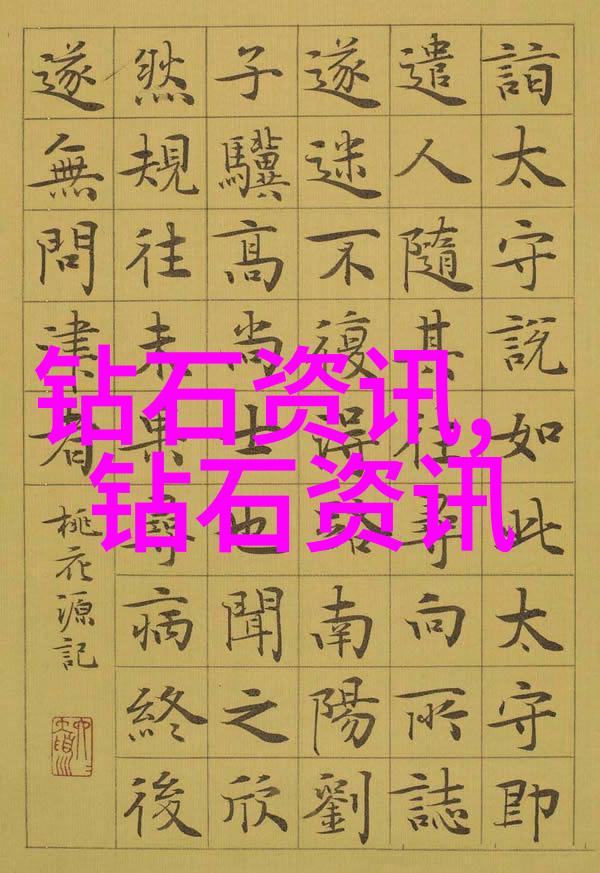 詣太守說如此太守即
遣人隨其往尋向所誌
遂迷不復得路南陽劉
子驥高尚士也聞之欣
然規往未果尋病終後
遂無問津者
桃花源記
钻石资讯,
钻石资讯